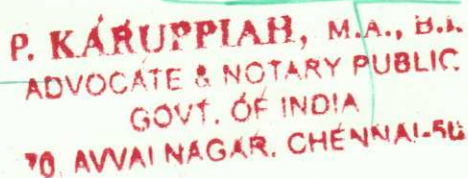 P. KARUPPIAH, M.A., B.L.
ADVOCATE & NOTARY PUBLIC
GOVT. OF INDIA
70, AVVAI NAGAR, CHENNAI-50